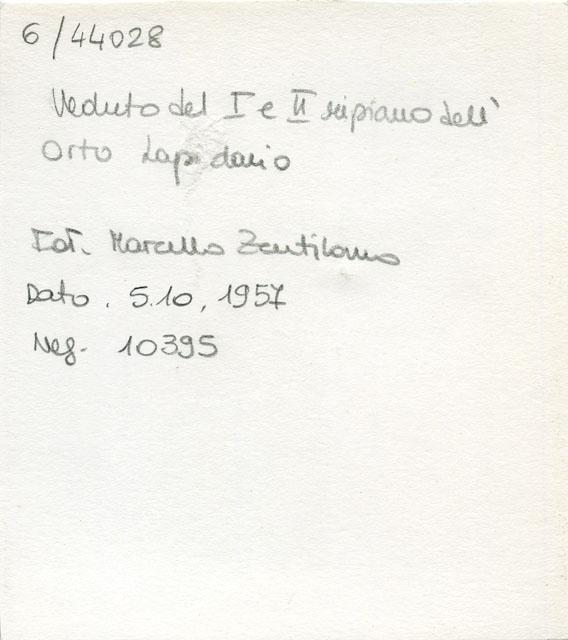 6/44028
Veduta del I e II ripiano dell'
Orto Lapidario
Fot. Marcello Zentilomo
Data. 5.10, 1957
Neg. 10395